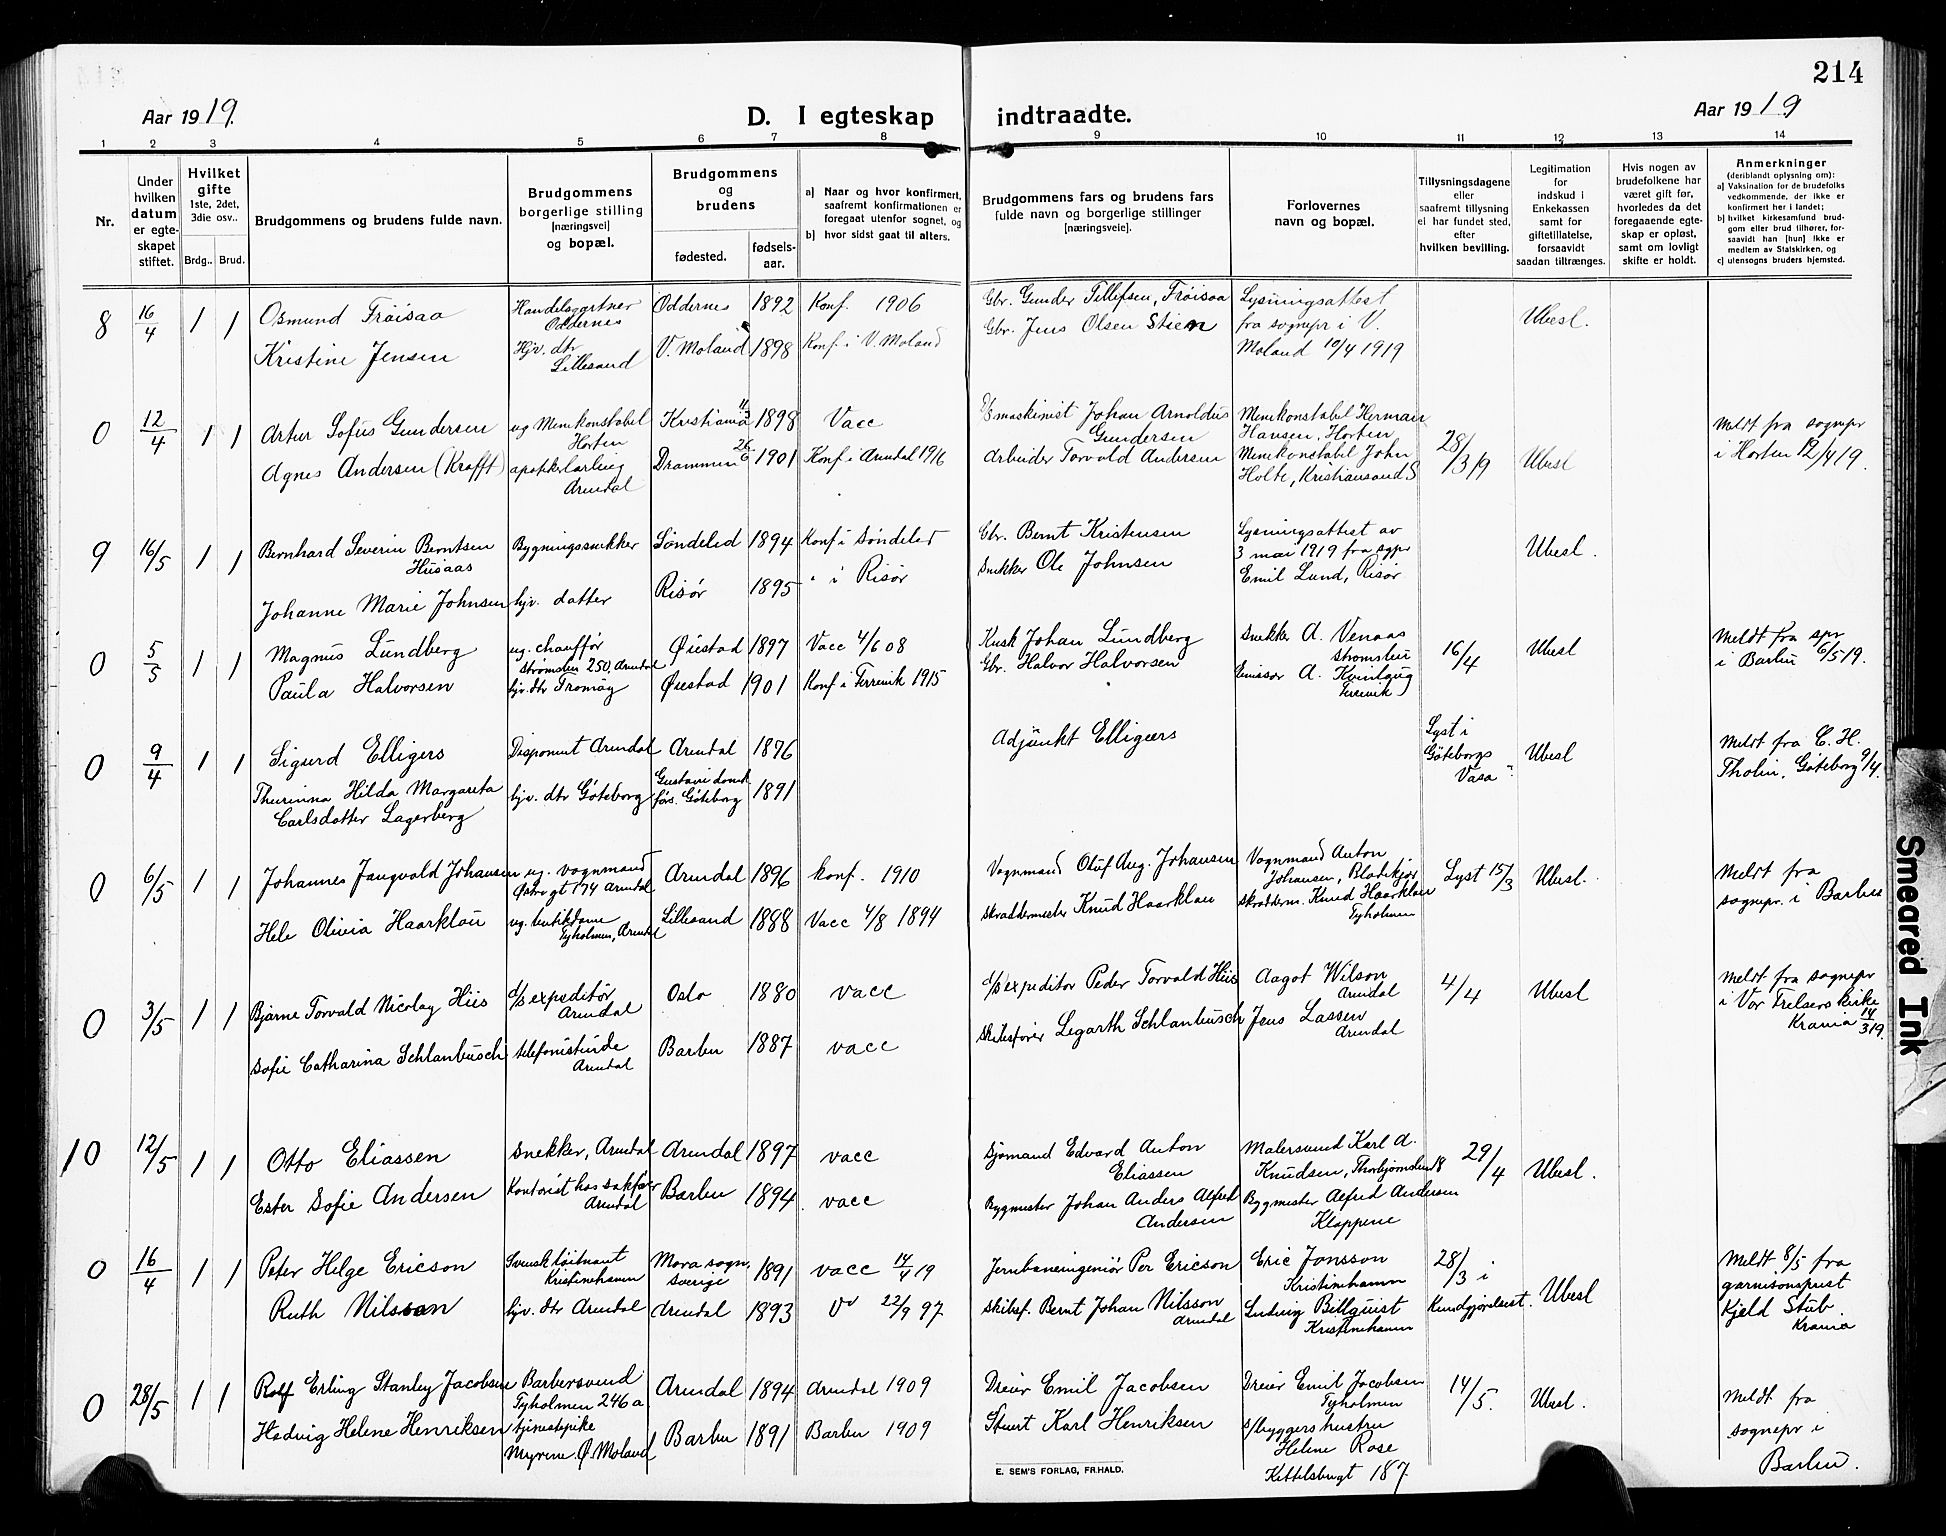 214
Aar 1919.
D. I egteskap indtraadte.
Aar 1919
1 2 3 4 5 6 7 8 9 10 11 12 13 14
Nr.
Under hvilken datum er egteskapet stiftet.
Hvilket gifte 1ste, 2det, 3die osv..
Brdg.. Brud.
Brudgommens og brudens fulde navn.
Brudgommens borgerlige stilling [næringsvei] og bopæl.
Brudgommens og brudens
fødested.
fødselsaar.
a) Naar og hvor konfirmert, saafremt konfirmationen er foregaat utenfor sognet, og
b) hvor sidst gaat til alters.
Brudgommens fars og brudens fars fulde navn og borgerlige stillinger [næringsveie].
Forlovernes navn og bopæl.
Tillysningsdagene eller saafremt tillysning ei har fundet sted, efter hvilken bevilling.
Legitimation for indskud i Enkekassen samt for giftetillatelse, forsaavidt saadan tiltrænges.
Hvis nogen av brudefolkene har været gift før, hvorledes da det foregaaende egteskap er opløst, samt om lovligt skifte er holdt.
Anmerkninger (deriblandt oplysning om):
a) Vaksination for de brudefolks vedkommende, der ikke er konfirmert her i landet;
b) hvilket kirkesamfund brudgom eller brud tilhører, forsaavidt han [hun] ikke er medlem av Statskirken, og
c) utensogns bruders hjemsted.
8 16/4 1 1 Osmund Frøisaa Handelsgartner Oddernes Oddernes 1892 Konf. 1906 Gbr. Gunder Tellefsen, Frøisaa Lysningsattest fra sognepr i V. Moland 10/4 1919 Ubesl.
Kristine Jensen Hjv. dtr Lillesand V. Moland 1898 Konf i V. Moland Gbr. Jens Olsen Stien
0 12/4 1 1 Artur Sofus Gundersen ug Minekonstabel Horten Kristiania 11/3 1898 Vacc D/S maskinist Johan Arnoldus Gundersen Minekonstabel Herman Hansen, Horten 28/3 19 Ubesl Meldt fra sognepr i Horten 12/4 19.
Agnes Andersen (Krafft) apoteklærling Arendal Drammen 26/6 1901 Konf i Arendal 1916 Arbeider Torvald Andersen Minekonstabel John Holte, Kristiansand S
9 16/5 1 1 Bernhard Severin Berntsen Husaas Bygningssnekker Søndeled 1894 Konf i Søndeled Gbr. Bernt Kristensen Lysningsattest av 3 mai 1919 fra sgpr Emil Lund, Risør Ubesl.
Johanne Marie Johnsen hjv. datter Risør 1895 " i Risør Snekker Ole Johnsen
0 5/5 1 1 Magnus Lundberg ug. chauffør Strømsbu 250, Arendal Øiestad 1897 Vacc 4/6 08 Kusk Johan Lundberg Snekker A. Venaas Strømsbu 16/4 Ubesl Meldt fra spr i Barbu 6/5 19.
Paula Halvorsen hjv. dtr Tromøy Øiestad 1901 Konf i Fervik 1915 Gbr. Halvor Halvorsen Emissær A. Kvinlaug
0 9/4 1 1 Sigurd Elligers Disponent Arendal Arendal 1876 Adjunkt Elligers Lyst i Göteborgs Vasa Ubesl Meldt fra C. H. Tholin, Göteborg 9/4.
Thurinna Hilda Margareta Carlsdotter Lagerberg hjv. dtr Göteborg Gustavi domk förs. Göteborg 1891
0 6/5 1 1 Johannes Jangvald Johansen ug. vognmand Østregt 174 Arendal Arendal 1896 konf. 1910 Vognmand Oluf Aug. Johansen Vognmand Anton Johansen, Blødekjær Lyst 15/3 Ubesl. Meldt fra sognepr. i Barbu
Hele Olivia Haarklou ug. butikdame Tyholmen, Arendal Lillesand 1888 Vacc 4/8 1894 Skræddermester Knud Haarklau skrædderm. Knud Haarklau Tyholmen
0 3/5 1 1 Bjarne Torvald Nicolay Hiis d/s expeditør Arendal Oslo 1880 vacc d/s expeditør Peder Torvald Hiis Aagot Wilson Arendal 4/4 Ubesl Meldt fra sognepr i Vor Frelsers kirke Krania 14/3 19.
Sofie Catharina Schlanbusch telefonistinde Arendal Barbu 1887 vacc Skibsfører Legarth Schlanbusch Jens Lassen Arendal
10 12/5 1 1 Otto Eliassen Snekker, Arendal Arendal 1897 vacc Sjømand Edvard Anton Eliassen Malersvend Karl A. Knudsen, Thorbjørnsbu 8 29/4 Ubesl.
Ester Sofie Andersen Kontorist hos sakfører Arendal Barbu 1894 vacc Bygmester Johan Anders Alfred Andersen Bygmester Alfred Andersen Kloppene
0 16/4 1 1 Peter Helge Ericson Svensk løitnant Kristinehamn Mora sogn, Sverige 1891 vacc 14/4 19 Jernbaneingeniør Per Ericson Eric Jonsson Kristinehamn 28/3 i Kundgjørelsest. Ubesl Meldt 8/5 fra garnisonsprest Kjeld Stub. Krania
Ruth Nilsson hjv. dtr Arendal Arendal 1893 V 22/9 97 Skibsf. Bernt Johan Nilsson Arendal Ludvig Billquist Kristinehamn
0 28/5 1 1 Rolf Erling Stanley Jacobsen Barbersvend Tyholmen 246a Arendal 1894 Arendal 1909 Dreier Emil Jacobsen Dreier Emil Jacobsen Tyholmen 14/5. Ubesl. Meldt fra sognepr i Barbu.
Hedvig Helene Henriksen tjenestepike Myrene Ø. Moland Barbu 1891 Barbu 1909 Stuert Karl Henriksen s/byggers hustru Helene Rose Kittelsbugt 187
E. SEM'S FORLAG, FR.HALD.
Smeared Ink